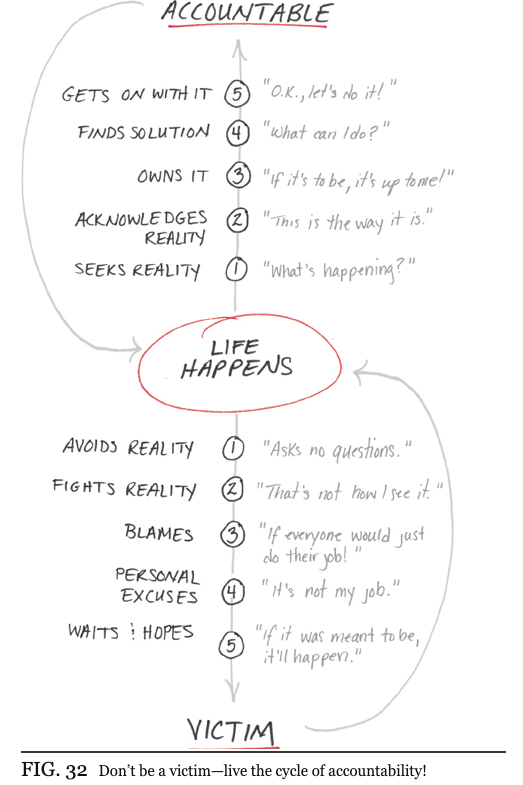 ACCOUNTABLE
GETS ON WITH IT 5 "O.K., let's do it!"
FINDS SOLUTION 4 "What can I do?"
OWNS IT 3 "If it's to be, it's up to me!"
ACKNOWLEDGES 2 "This is the way it is."
REALITY
SEEKS REALITY 1 "What's happening?"
LIFE
HAPPENS
AVOIDS REALITY 1 "Asks no questions."
FIGHTS REALITY 2 "That's not how I see it."
BLAMES 3 "If everyone would just
do their job!"
PERSONAL
EXCUSES 4 "It's not my job."
WAITS & HOPES 5 "If it was meant to be,
it'll happen."
VICTIM
FIG. 32 Don't be a victim—live the cycle of accountability!